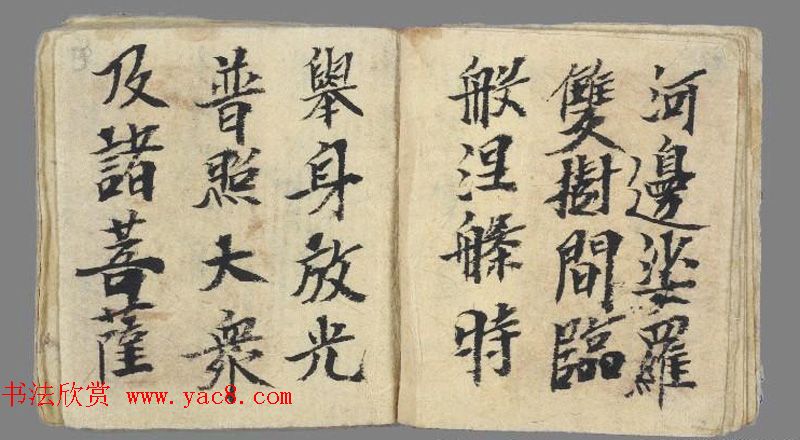 河邊娑羅
雙樹間臨
般涅槃時
舉身放光
普照大衆
及諸菩薩
书法欣赏 www.yac8.com